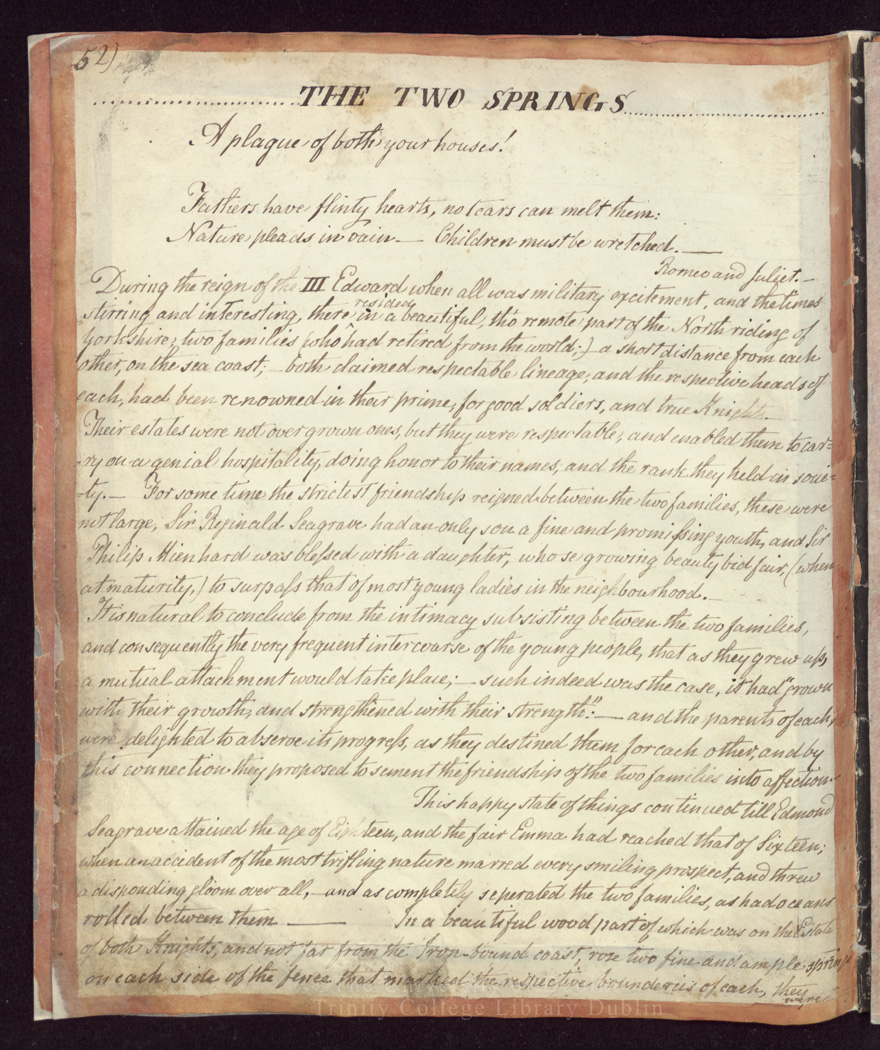 52)
THE TWO SPRINGS
A plague of both your houses!
Fathers have flinty hearts, no tears can melt them:
Nature pleads in vain — Children must be wretched. —
Romeo and Juliet. —
During the reign of the III Edward when all was military excitement, and the times
resided
stirring and interesting, there in a beautiful, tho' remote part of the North riding of
Yorkshire; two families (who had retired from the world;) a short distance from each
other, on the sea coast; — both claimed respectable lineage, and the respective heads of
each, had been renowned in their prime, for good soldiers, and true Knights. —
Their estates were not over grown ones, but they were respectable, and enabled them to car=
-ry on a genial hospitality, doing honor to their names, and the rank they held in soci=
-ty. — For some time the strictest friendship reigned between the two families, these were
not large, Sir Reginald Seagrave had an only son a fine and promissing youth, and Sir
Philip Mienhard was blessed with a daughter, whose growing beauty bid fair, (when
at maturity,) to surpass that of most young ladies in the neighbourhood. —
It is natural to conclude from the intimacy subsisting between the two families,
and consequently the very frequent intercoarse of the young people, that as they grew up,
a mutual attachment would take place; — such indeed was the case, it "had grown
with their growth, and strengthened with their strength": — and the parents of each,
were delighted to observe its progress, as they destined them for each other, and by
this connection they proposed to sement the friendship of the two families into affection.
This happy state of things continued till Edmond
Seagrave attained the age of Eighteen, and the fair Emma had reached that of Sixteen;
when an accident of the most trifling nature marred every smiling prospect, and threw
a disponding gloom over all, — and as completely seperated the two families, as had oceans
rolled between them — In a beautiful wood part of which was on the Estate
of both Knights, and not far from the Iron-bound coast, rose two fine and ample springs
on each side of the fence that marked the respective bounderies of each, they
were
Trinity College Library Dublin